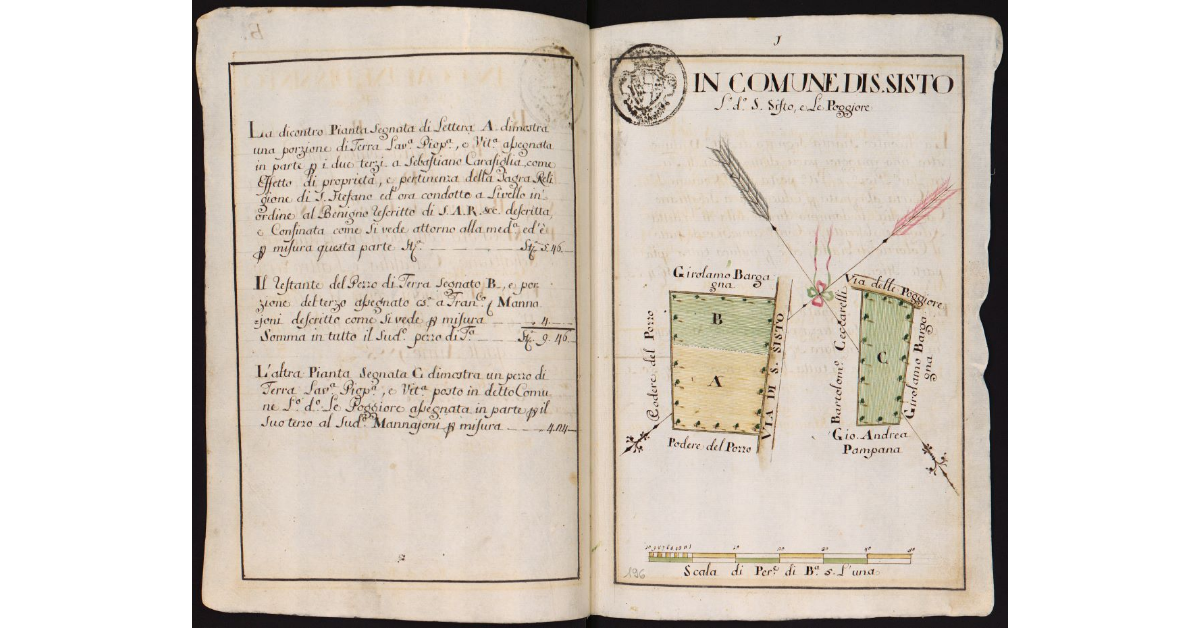 La dicontro Pianta Segnata di Lettera A. dimostra
una porzione di Terra Lav.ª Piop.ª, e Vit.ª assegnata
in parte p i due terzi a Sebastiano Carasiglia come
Effetto di proprietà, e pertinenza della Sagra Reli
gione di S. Stefano ed'ora condotto a Livello in'
ordine al Benigno rescritto di S.A.R. &c. descritta
e Confinata come si vede attorno alla med.ª ed'è
p misura questa parte
5. 46
Il restante del Pezzo di Terra Segnato B, e por
zione del terzo assegnato a Fran.co Manna
joni descritto come si vede p misura 4
Somma in tutto il Sud.º pezzo di T.ª 9. 46
L'altra Pianta Segnata C. dimostra un pezzo di
Terra Lav.ª Piop.ª, e Vit.ª posto in detto Comu
ne L.º d.º Le Poggiore assegnata in parte p il
Suo terzo al Sud.º Mannajoni p misura
1
IN COMUNE DI S. SISTO
L.º d.º S. Sisto, e Le Poggiore
Girolamo Barga
gna
Via delle Poggiore
B
A
C
Podere del Pozzo
VIA DI S. SISTO
Bartolom.º Ceccarelli
Girolamo Barga
gna
Podere del Pozzo
Gio. Andrea
Pampana
10
20
30
40
Scala di Per.e di B.ª 5. L'una
196